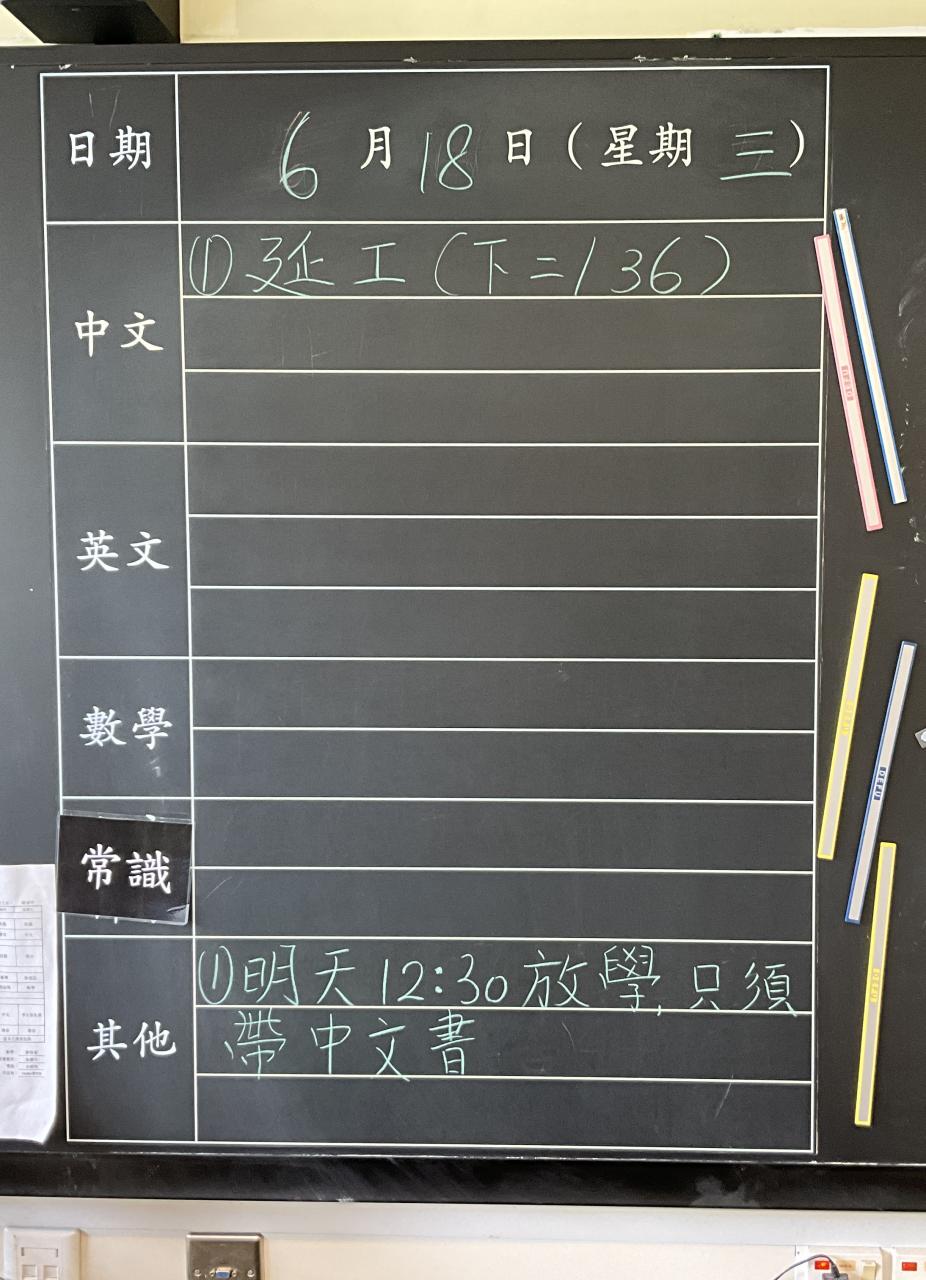 日期 6月18日(星期三)
中文 ①延工(下二/36)
英文
數學
常識
其他 ①明天12:30放學,只須
帶中文書